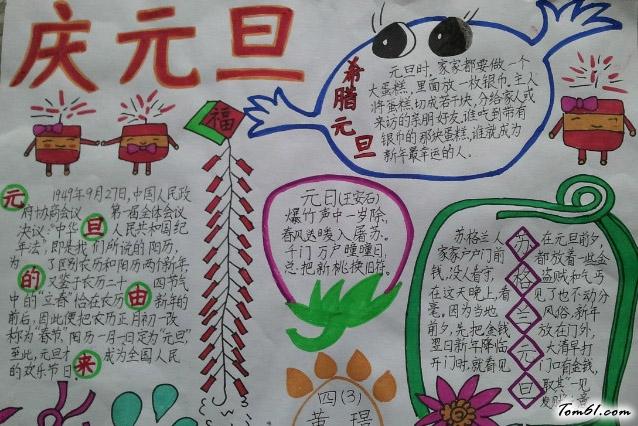 庆元旦
希腊元旦
元旦时,家家都要做一个
大蛋糕,里面放一枚银币,主人
将蛋糕切成若干块,分给家人或
来访的亲朋好友,谁吃到带有
银币的那块蛋糕,谁就成为
新年最幸运的人.
福
元旦的由来
1949年9月27日,中国人民政
府协商会议 第一届全体会议
决议:"中华 人民共和国纪
年法",即是我们所说的阳历,
为了区别农历和阳历两个新年
又鉴于农历二十四节气
中的"立春"恰在农历 新年的
前后,因此便把农历正月初一改
称为"春节",阳历一月一日定为"元旦",
至此,元旦才 成为全国人民
的欢乐节日.
元日(王安石)
爆竹声中一岁除,
春风送暖入屠苏.
千门万户瞳瞳日,
总把新桃换旧符.
苏格兰元旦
苏格兰人
家家户户门前
钱,没人看守,
在这天晚上,看
毫。因为当地
前夕,先把金钱
翌日新年降临
开门时,就看见
在元旦前夕,
都放着一些金
盗贼和乞丐
见了也不动分
风俗,新年
放在门外,
大清早打
门口有金钱,
取其"一见
四(3)
黄
Tom61.com